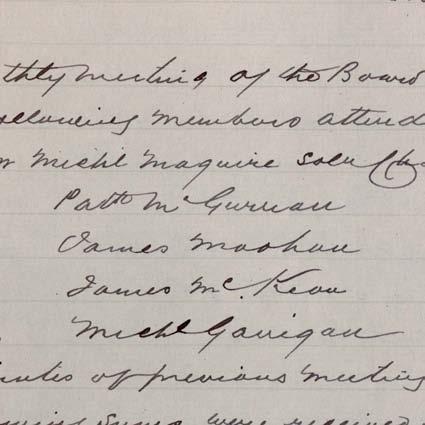 thly meeting of the Board
following members attend
Michl Maguire
Patk McGurnan
James Moohan
James McKeon
Michl Garrigan
nutes of previous meeting
were received